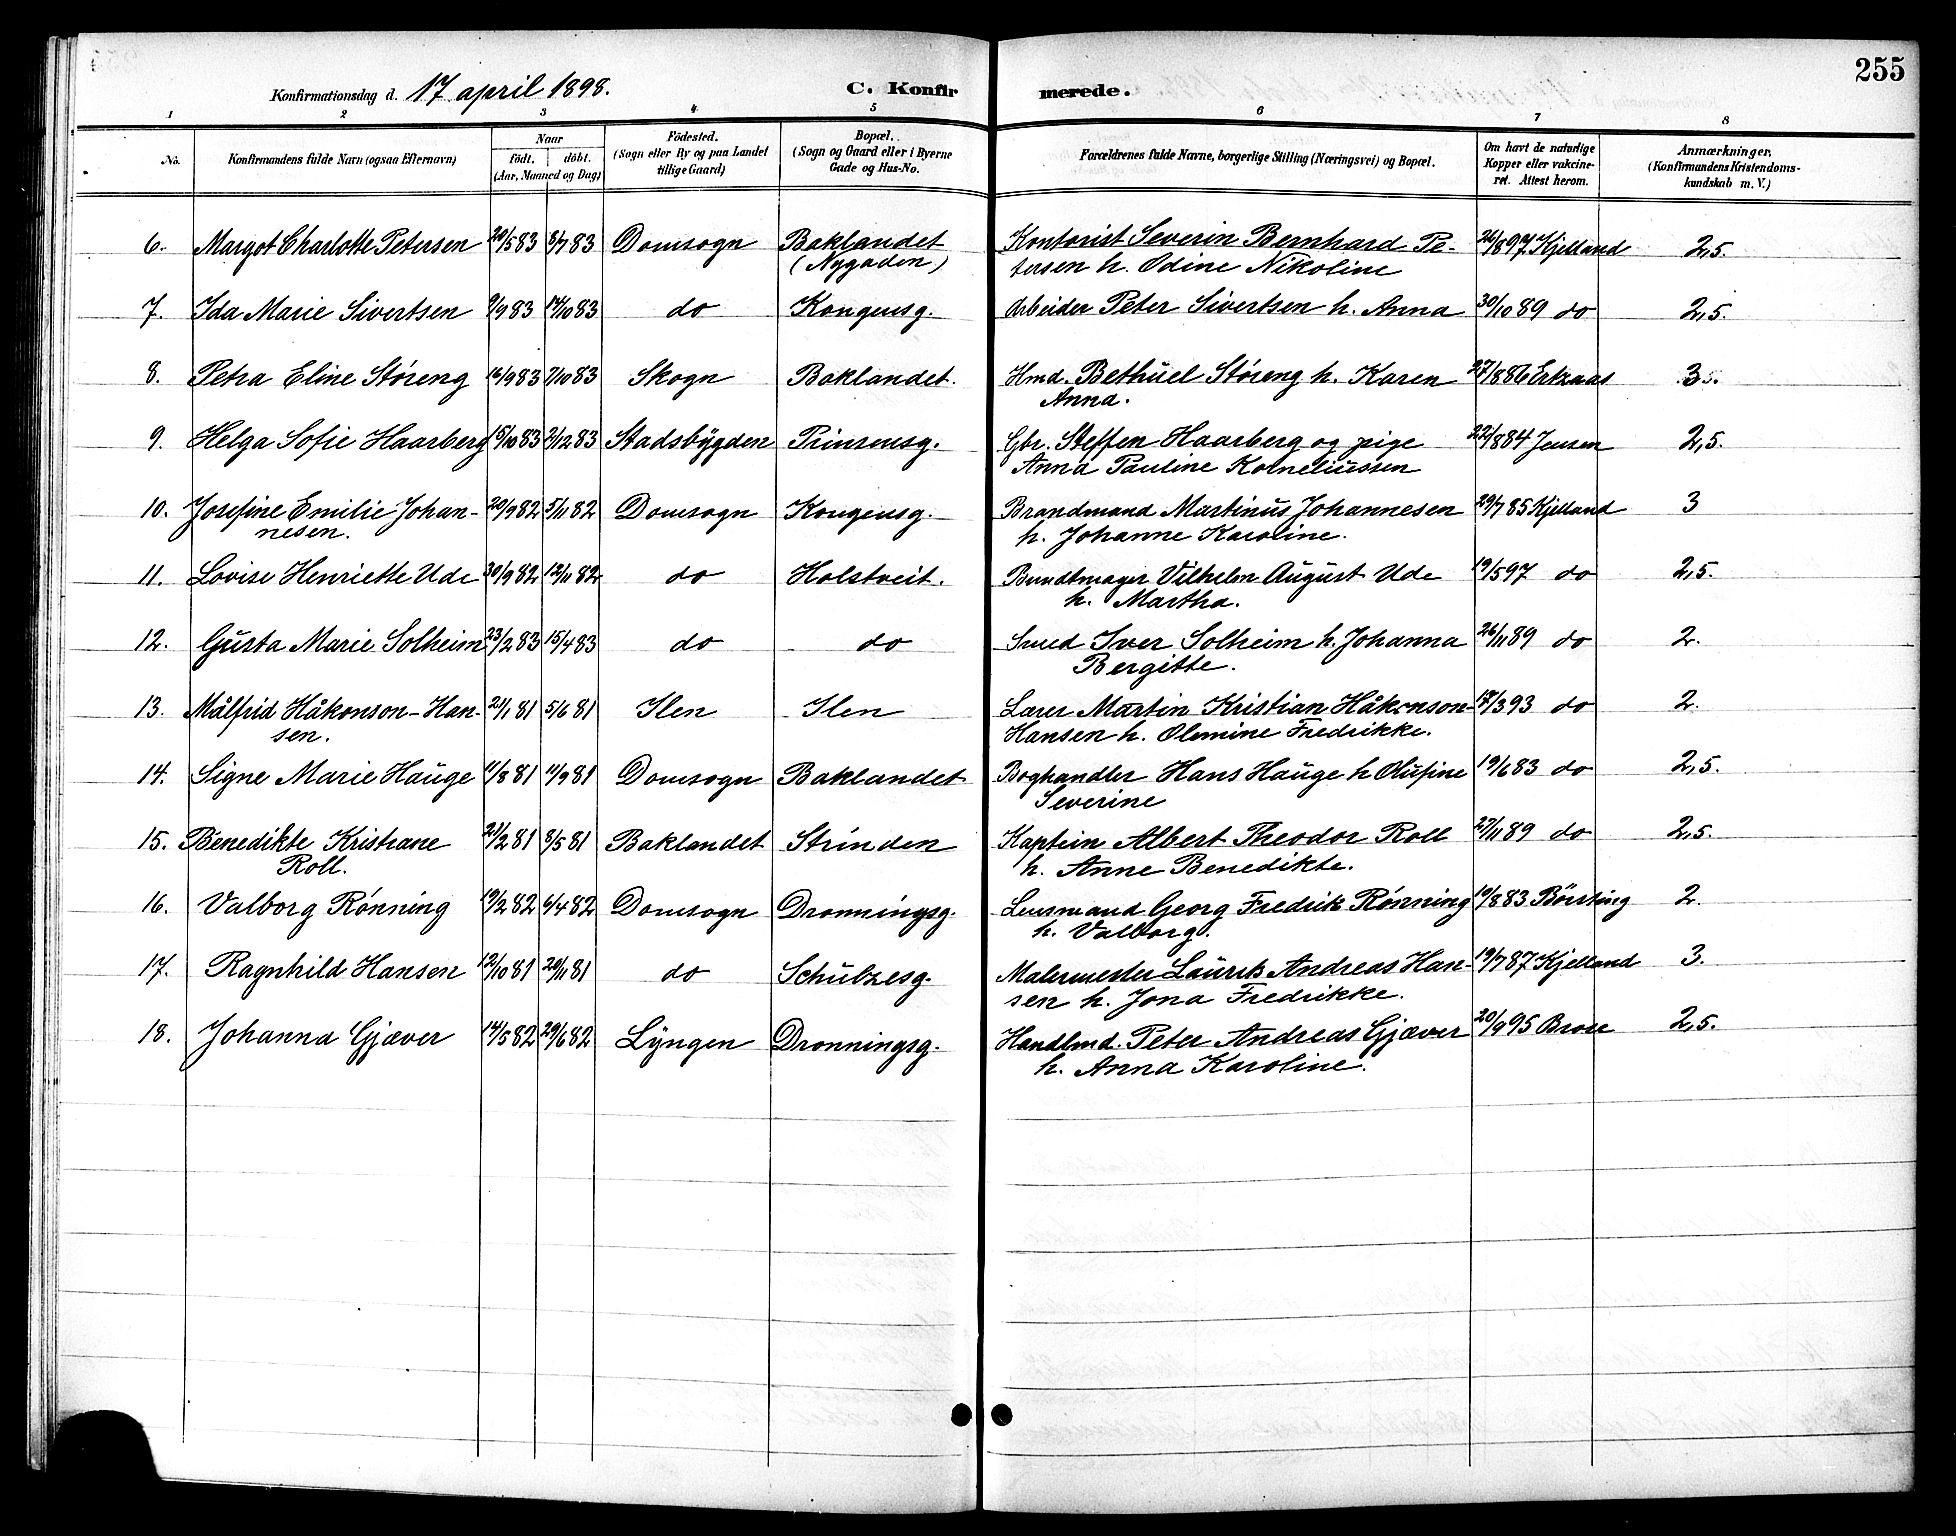 255
Konfirmationsdag d. 17 april 1898.
C. Konfirmerede.
1 2 3 4 5 6 7 8
No. Konfirmandens fulde Navn (ogsaa Efternavn) Naar födt. döbt. (Aar, Maaned og Dag) Födested. (Sogn eller By og paa Landet tillige Gaard) Bopæl. (Sogn og Gaard eller i Byerne Gade og Hus-No. Forældrenes fulde Navne, borgerlige Stilling (Næringsvei) og Bopæl. Om havt de naturlige Kopper eller vakcineret. Attest herom. Anmærkninger, (Konfirmandens Kristendomskundskab m. V.)
6. Margot Charlotte Petersen 29/5 83 8/7 83 Domsogn Baklandet Kontorist Severin Bernhard Pe- 26/8 97 Kjelland 2,5.
(Nygaden) tersen h. Odine Nikoline
7. Ida Marie Sivertsen 9/9 83 14/10 83 do Kongensg. Arbeider Peter Sivertsen h. Anna 30/10 89 do 2,5.
8. Petra Eline Støreng 16/9 83 7/10 83 Skogn Baklandet. Hmd. Bethuel Støreng h. Karen 27/8 86 3.
Anna.
9. Helga Sofie Haarberg 15/10 83 2/12 83 Stadsbygden Prinsensg. Gbr. Steffen Haarberg og pige 22/8 84 Jensen 2,5.
Anna Pauline Korneliussen
10. Josefine Emilie Johan- 20/9 82 5/11 82 Domsogn Kongensg. Brandmand Martinus Johannesen 29/7 85 Kjelland 3
nesen. h. Johanne Karoline.
11. Lovise Henriette Ude 30/9 82 12/11 82 do Holstveit. Bundtmager Vilhelm August Ude 19/5 97 do 2,5.
h. Martha.
12. Gusta Marie Solheim 23/2 83 15/4 83 do do Smed Iver Solheim h. Johanna 26/11 89 do 2.
Bergitte.
13. Målfrid Håkonson-Han- 21/1 81 5/6 81 Ilen Ilen Lærer Martin Kristian Håkonson- 18/3 93 do 2.
sen. Hansen h. Olemine Fredrikke.
14. Signe Marie Hauge 11/8 81 11/9 81 Domsogn Baklandet Boghandler Hans Hauge h Olufine 19/6 83 do 2,5.
Severine
15. Benedikte Kristiane 21/2 81 8/5 81 Baklandet Strinden Kaptein Albert Theodor Roll 27/11 89 do 2,5.
Roll. h. Anne Benedikte.
16. Valborg Rønning 19/2 82 6/4 82 Domsogn Dronningsg. Lensmand Georg Fredrik Rønning 19/8 83 Börsting 2.
h. Valborg.
17. Ragnhild Hansen 12/10 81 20/11 81 do Schultzesg. Malermester Laurits Andreas Han- 19/7 87 Kjelland 3.
sen h. Jona Fredrikke.
18. Johanna Gjæver 14/5 82 29/6 82 Lyngen Dronningsg. Handlmd. Peter Andreas Gjæver 20/9 95 2,5.
h. Anna Karoline.